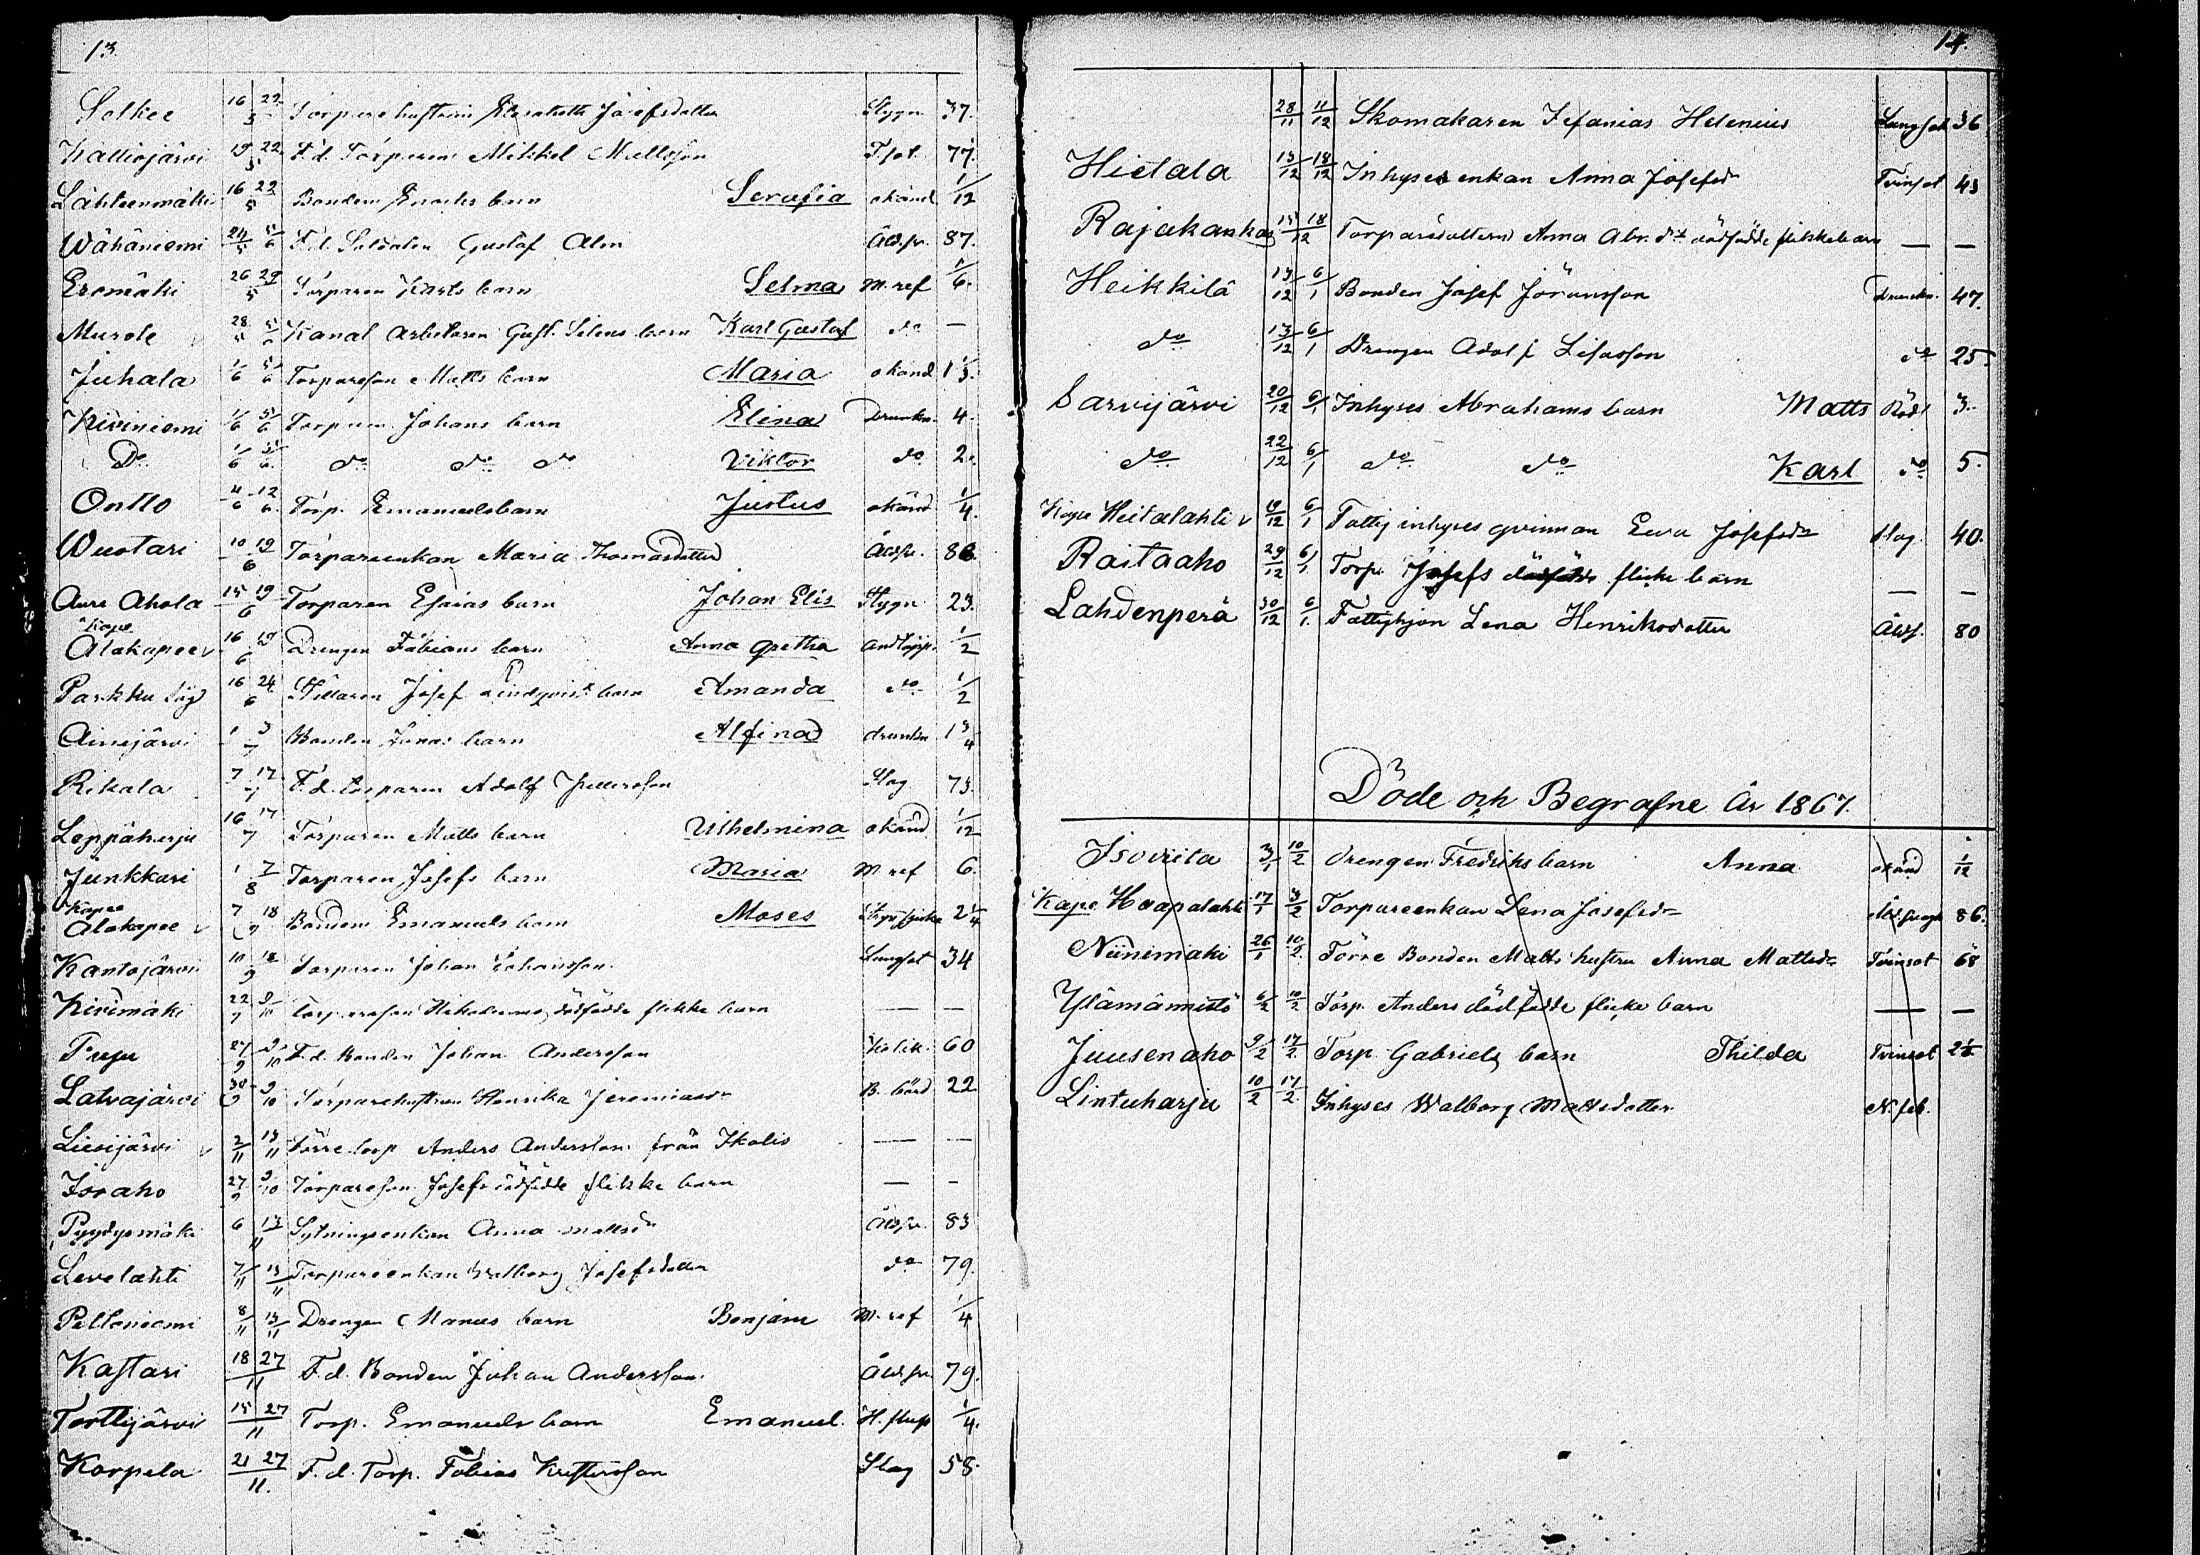 13.
Selkee 16 22/5 Torpare hustrun Elisabeth Josefsdotter Stygn 37.
Kattiojärvi 19 22/5 F.d. Torparen Mikkel Mattsson T.sot 77.
Lähteenmäki 16 22/5 Bonden Enochs barn Serafia okänd 1/12
Wähäniemi 24/5 5/6 F.d. Soldaten Gustaf Alm Åldsv. 87.
Eromäki 26 29/5 Torparen Karls barn Selma M. ref 1/6.
Murole 28/5 5/6 Kanal Arbetaren Gust. Silens barn Karl Gustaf do —
Juhala 1/6 5/6 Torpareson Matts barn Maria okänd
Kiviniemi 1/6 5/6 Torparen Johans barn Elina Drunkn. 4.
Do 1/6 5/6 do do do Viktor do 2.
Ontto 4/6 12/6 Torp. Emanuels barn Justus okänd 1/4.
Wuotari 10 19/6 Torpareenkan Maria Thomasdotter Åldsv. 86
Aure Ahola 15 19/6 Torparen Esaias barn Johan Elis Stygn 23.
Kapee
Alakapee 16 19/6 Drengen Fabians barn Anna Gretha Andtäpp. 1/2
Parkku Såg 16 24/6 Ställaren Josef Lindqvist barn Amanda do 1/2
Ainejärvi 1 3/7 Bonden Jonas barn Alfina drunkn 1 3/4
Rikala 7 17/7 F.d. torparen Adolf Pettersson Slag 73.
Leppäharju 16 17/7 Torparen Matts barn Wilhelmina okänd 1/12
Junkkari 1 7/8 Torparen Josefs barn Maria M ref 6.
Kapee
Alakapee 7 18/9 Bonden Emanuels barn Moses 2 1/4
Kantojärvi 10 18/9 Torparen Johan Johansson Lungsot 34
Kivimäki 22/9 9/10 Torpareson dödfödde flikke barn — —
Puju 27/9 9/10 F.d. Bonden Johan Andersson Kolik. 60
Latvajärvi 30/9 9/10 Torparehustrun Henrika Jeremiasdr B. börd 22
Liesijärvi 2/11 13/11 Förre torp Anders Andersson från Ikalis — —
Joraho 27/9 9/10 Torpareson Josefs dödfödde flikke barn — —
Pyydysmäki 6 13/11 Sytningsenkan Anna Mattsdr Åldsv. 83
Levelahti 7/11 13/11 Torpareenkan Walborg Josefsdotter do 79.
Peltoniemi 8/11 13/11 Drengen Manus barn Benjam M. ref 1/4
Kastari 18 27/11 F.d. Bonden Johan Andersson Åldsv. 79.
Terttijärvi 15 27/11 Torp. Emanuels barn Emanuel. 1/4.
Korpela 21 27/11. F.d. Torp. Tobias Kristersson Slag 58.
14.
28/11 11/12 Skomakaren Zefanias Helenius Lungsot 36
Hietala 13/12 18/12 Inhyses enkan Anna Josefsdr Tvinsot 43
Rajakaskas 15 18/12 Torparedottern Anna Abr.dr dödfödde flikkebarn — —
Heikkilä 13/12 6/1 Bonden Josef Jöransson Drunkn. 47.
do 13/12 6/1 Drengen Adolf Esasson do 25
Sarvijärvi 20/12 6/1 Inhyses Abrahams barn Matts Röds 3.
do 22/12 6/1 do do Karl do 5.
Kapee Heitalahti 18/12 6/1 Fattig inhyses qvinnan Ewa Josefsdr Slag. 40.
Raitaaho 29/12 6/1 Torp. Josefs dödfödde flicke barn — —
Lahdenperä 30/12 6/1. Fattighjon Lena Henriksdotter Åldsv. 80
Döde och Begrafne År 1867.
Isoviita 3/1 10/2 drengen Fredriks barn Anna okänd 1/12
Kape Haapalahti 17/1 3/2 Torpareenkan Lena Josefsdr 86.
Niinimäki 26/1 10/2 Förre Bonden Matts hustru Anna Mattsdr Tvinsot 68
Ylämännistö 6/2 10/2 Torp. Anders dödfödde flicke barn — —
Juusenaho 9/2 17/2. Torp. Gabriels barn Thilda Tvinsot
Lintuharju 10/2 17/2. Inhyses Walborg Mattsdotter N. feb.